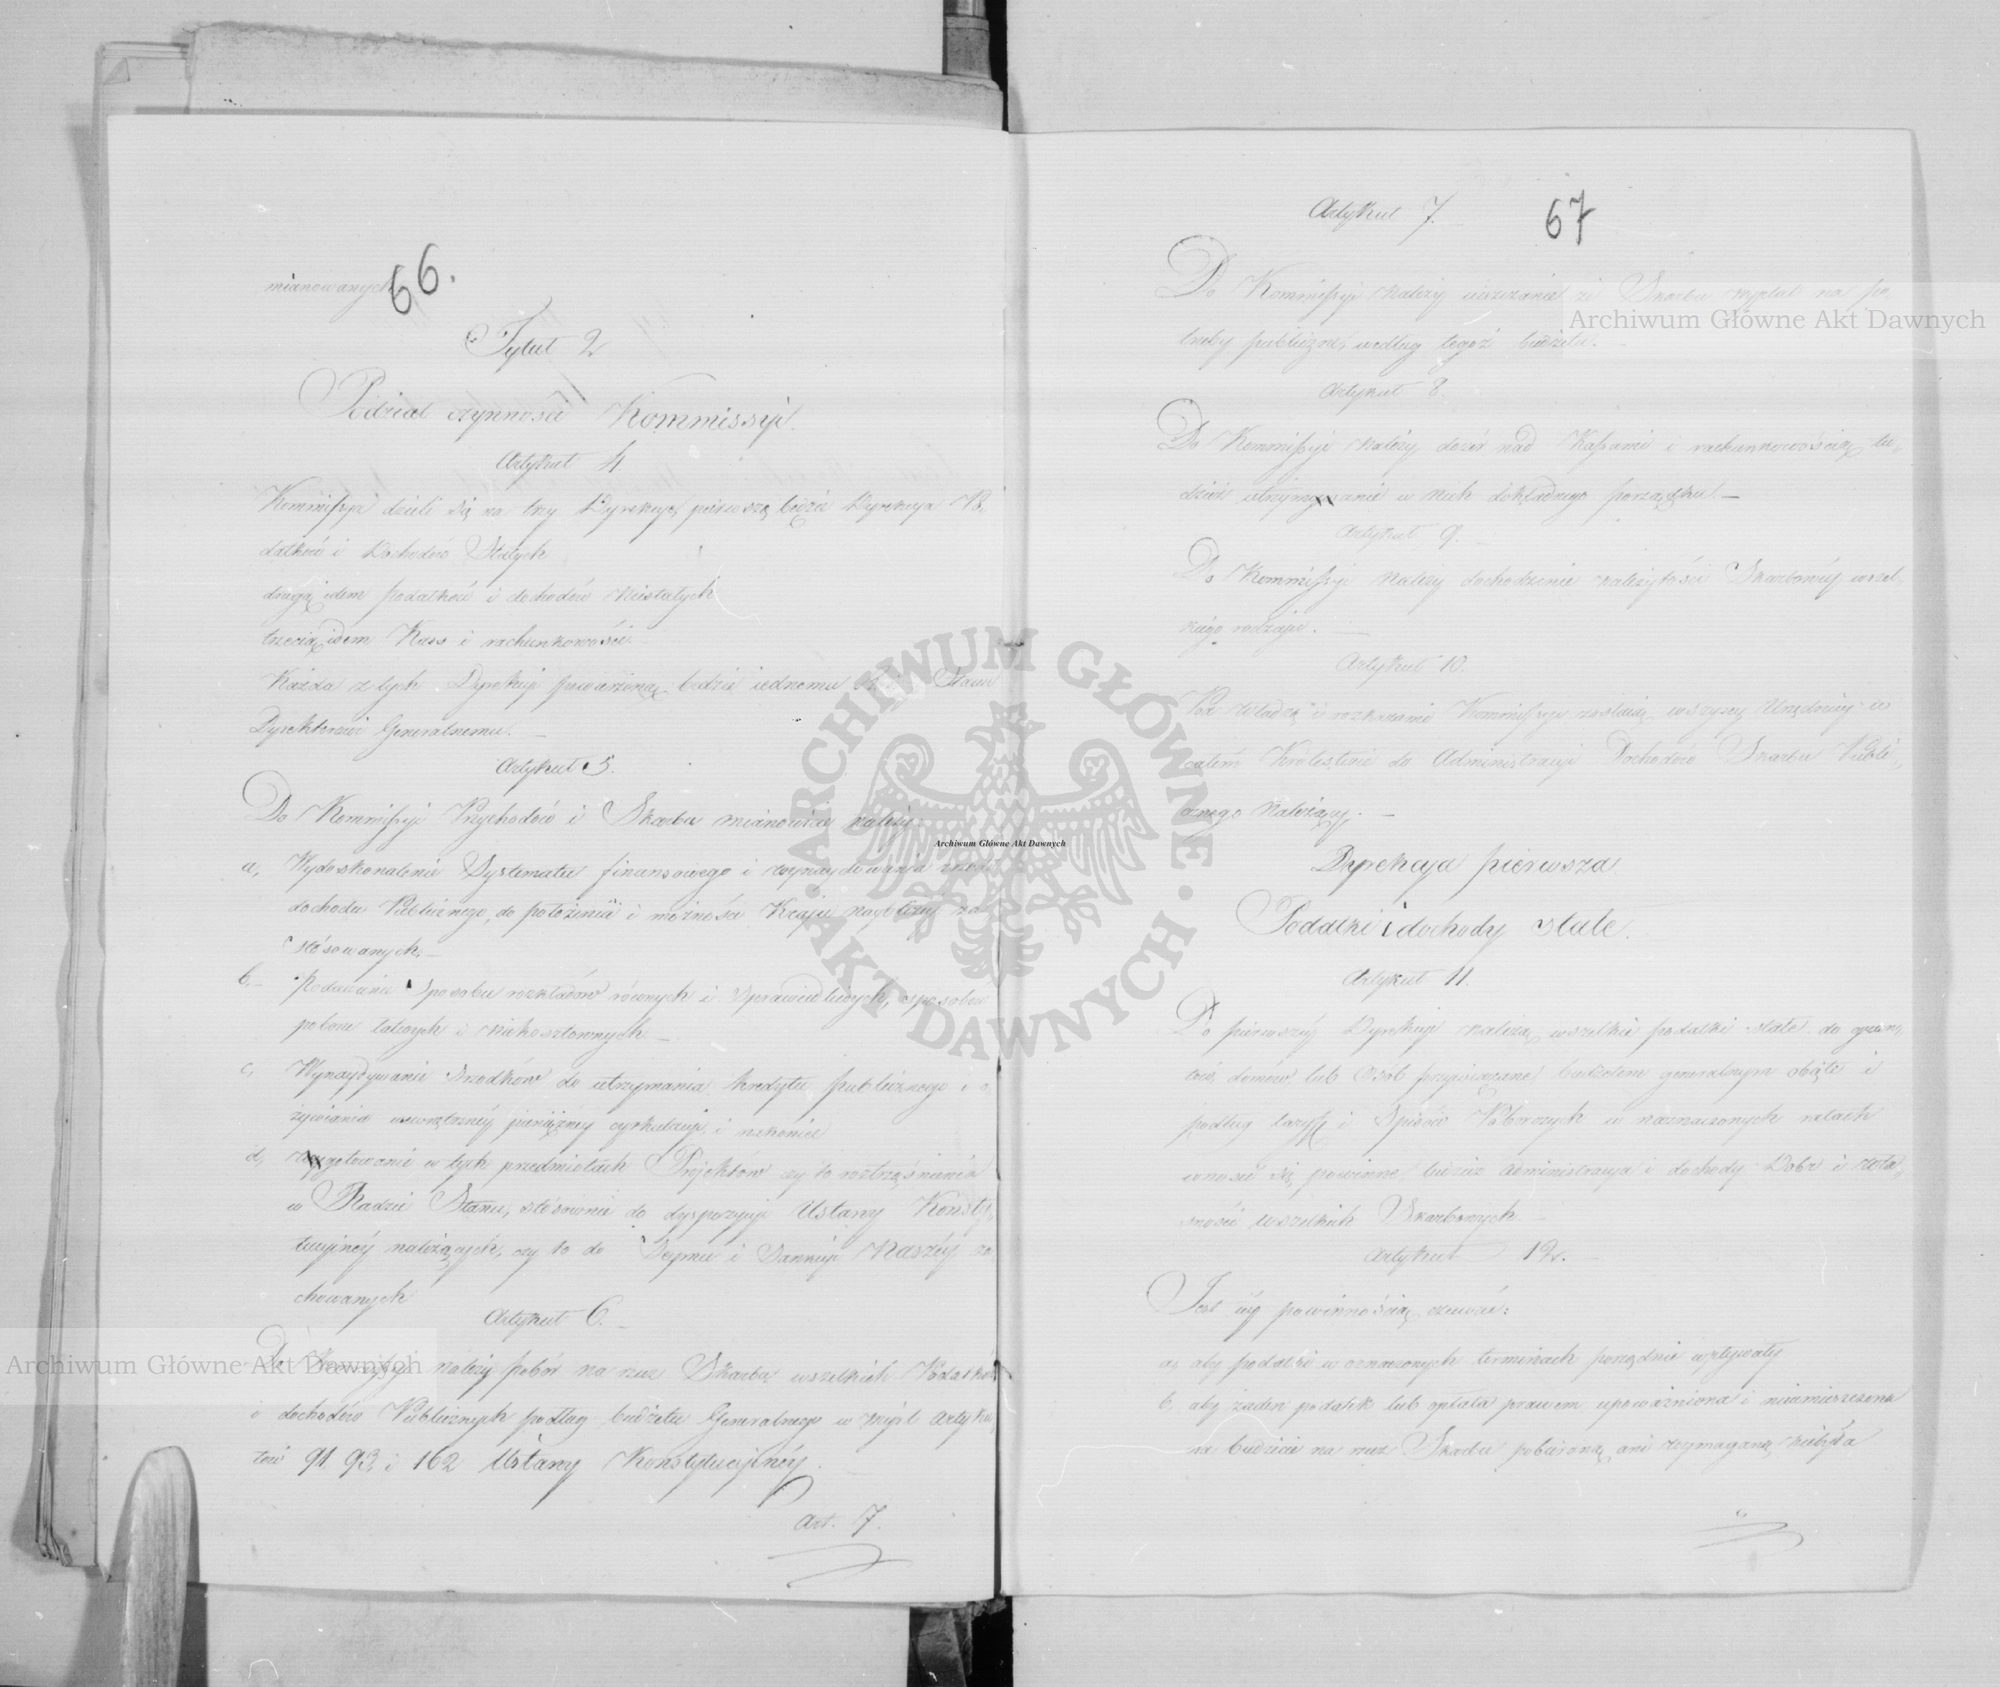 66.
mianowanych
Tytuł 2
Podział czynności Kommissyi.
Artykuł 4.
Kommissya dzieli się na trzy Dyrekcye, pierwszą będzie Dyrekcya Po,
datków i Dochodów Stałych
drugą idem podatków i dochodów niestałych
trzecią idem Kass i rachunkowości.
Każda z tych Dyrekcyi powierzoną będzie iednemu Stanu
Dyrektorowi Generalnemu. —
Artykuł 5.
Do Kommissyi Przychodów i Skarbu mianowicie należy.
a, Wydoskonalenie Systematu finansowego i wynaydowania
dochodu Publicznego, do położenia i możności Kraju naybliżey za
stósowanych. —
b. — Podawanie Sposobu rozkładów równych i Sprawiedliwych, sposobów
poboru łatwych i niekosztownych —
c, Wynaydywanie Srzodków do utrzymania kredytu publicznego i o,
żywiania wewnętrzney pieniężney cyrkulacyi, i nakoniec
d, gotowanie w tych przedmiotach Projektów czy to roztrząśnienia
w Radzie Stanu, stósownie do dyspozycyi Ustawy Konsty,
tucyjnéy należących, czy to do Seymu i Sankcyi Naszéy za
chowanych
Artykuł 6. —
Do Kommissyi należy pobór na rzecz Skarbu wszelkich Podatków
i dochodów Publicznych podług budżetu Generalnego w myśl Artyku,
łów 91 93, i 162 Ustawy Konstytucyjnéy. —
Art. 7.
Artykuł 7.
67
Do Kommissyi należy uiszczanie ze Skarbu wypłat na po,
trzeby publiczne, według tegoż budżetu. —
Artykuł 8.
Do Kommissyi należy dozór nad Kassami i rachunkowością tu,
dzież utrzymywanie w nich dokładnego porządku. —
Artykuł 9. —
Do Kommissyi należy dochodzenie należytości Skarbowéy wszel,
kiego rodzaju. —
Artykuł 10.
Pod władzą i rozkazami Kommissyi zostaią wszyscy Urzędnicy w
całém Królestwie do Administracyi Dochodów Skarbu Publi,
cznego należący. —
Dyrekcya pierwsza.
Podatki i dochody stałe.
Artykuł 11.
Do pierwszéy Dyrekcyi należą wszelkie podatki stałe do grun,
tów, domów lub osób przywiązane budżetem generalnym objęte i
podług taryff i Spisów Poborczych w naznaczonych ratach
wnosić się powinne, tudzież administracya i dochody Dóbr i wła,
sności wszelkich Skarbowych —
Artykuł 12. —
Jest iéy powinnością czuwać:
a, aby podatki w oznaczonych terminach porządnie wpływały
b, aby żaden podatek lub opłata prawem upoważniona i nieumieszczona
w budżecie na rzecz Skarbu pobieraną ani wymaganą niebyła
Archiwum Główne Akt Dawnych
Archiwum Główne Akt Dawnych
Archiwum Główne Akt Dawnych
ARCHIWUM GŁÓWNE • AKT DAWNYCH •